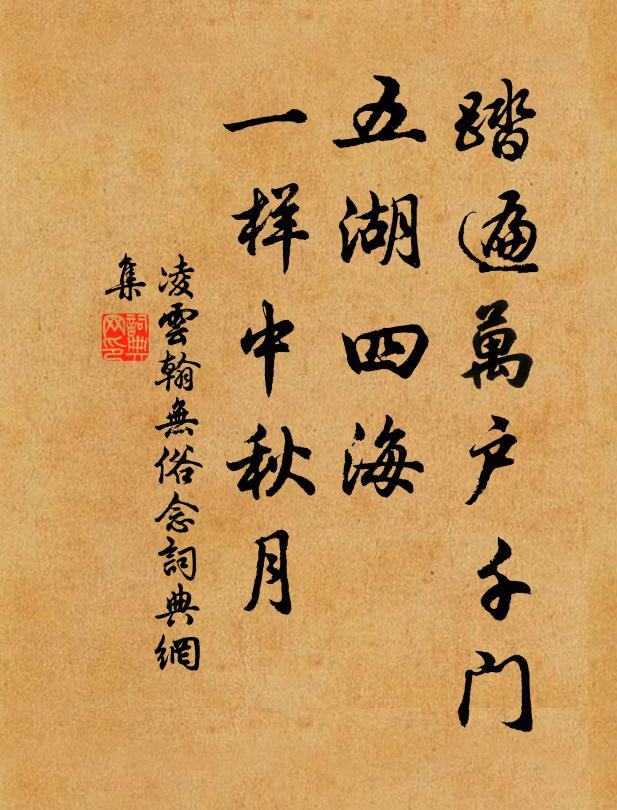 踏遍萬户千門
五湖四海
一样中秋月
凌雲翰無俗念詞典網
集
詞典网印